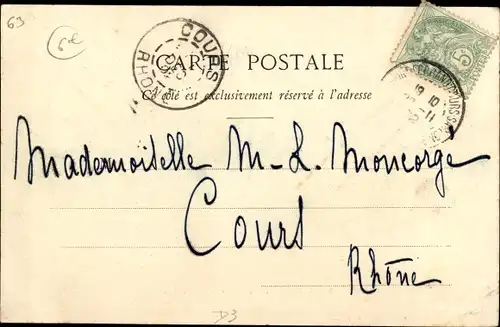 63
6d
COURS
RHONE
CARTE POSTALE
Ce côté est exclusivement réservé à l'adresse
5
Mademoiselle M-L. Moncorgé
Cours
Rhône
D3